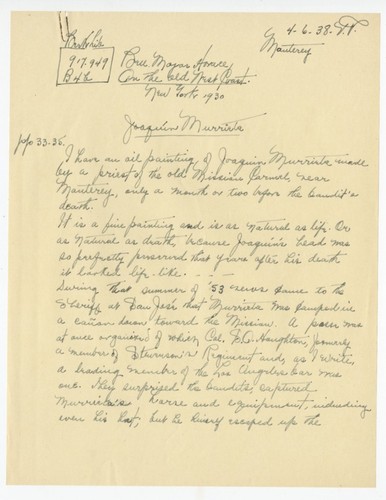 4-6-38.
Monterey
917.949
B42
Bell Major Horace
On the Old West Coast.
New York 1930
Joaquin Murrieta
pp 33-35.
I have an oil painting of Joaquin Murrieta made
by a priest of the old Mission Carmel, near
Monterey, only a month or two before the bandit's
death.
It is a fine painting and is as natural as life. Or
as natural as death, because Joaquin's head was
so perfectly preserved that years after his death
it looked life-like. - - -
During that summer of '53 news came to the
sheriff at San José that Murrieta was camped in
a cañon down toward the Mission. A posse was
at once organized of which Col. Houghton, formerly
a member of Stevenson's Regiment and, as I write,
a leading member of the Los Angeles bar was
one. They surprised the bandits, captured
Murrieta's horse and equipment, including
even his hat, but he barely escaped up the